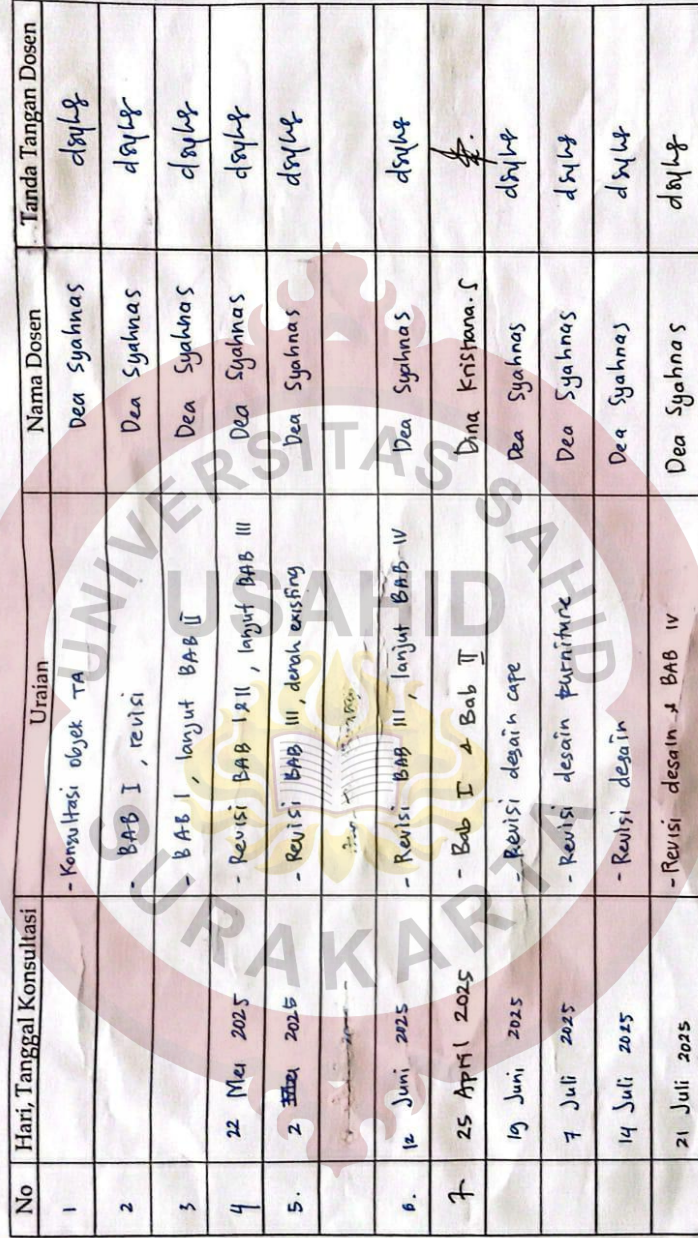 No Hari, Tanggal Konsultasi Uraian Nama Dosen Tanda Tangan Dosen
1 - Konsultasi objek TA Dea Syahnas
2 - BAB I , revisi Dea Syahnas
3 - BAB I , lanjut BAB II Dea Syahnas
4 22 Mei 2025 - Revisi BAB I & II , lanjut BAB III Dea Syahnas
5. 2 2025 - Revisi BAB III , denah existing Dea Syahnas
6. 12 Juni 2025 - Revisi BAB III , lanjut BAB IV Dea Syahnas
7 25 April 2025 - Bab I & Bab II Dina Kristiana.S
19 Juni 2025 - Revisi desain cafe Dea Syahnas
7 Juli 2025 - Revisi desain furniture Dea Syahnas
14 Juli 2025 - Revisi desain Dea Syahnas
21 Juli 2025 - Revisi desain & BAB IV Dea Syahnas
UNIVERSITAS SAHID
USAHID
SURAKARTA